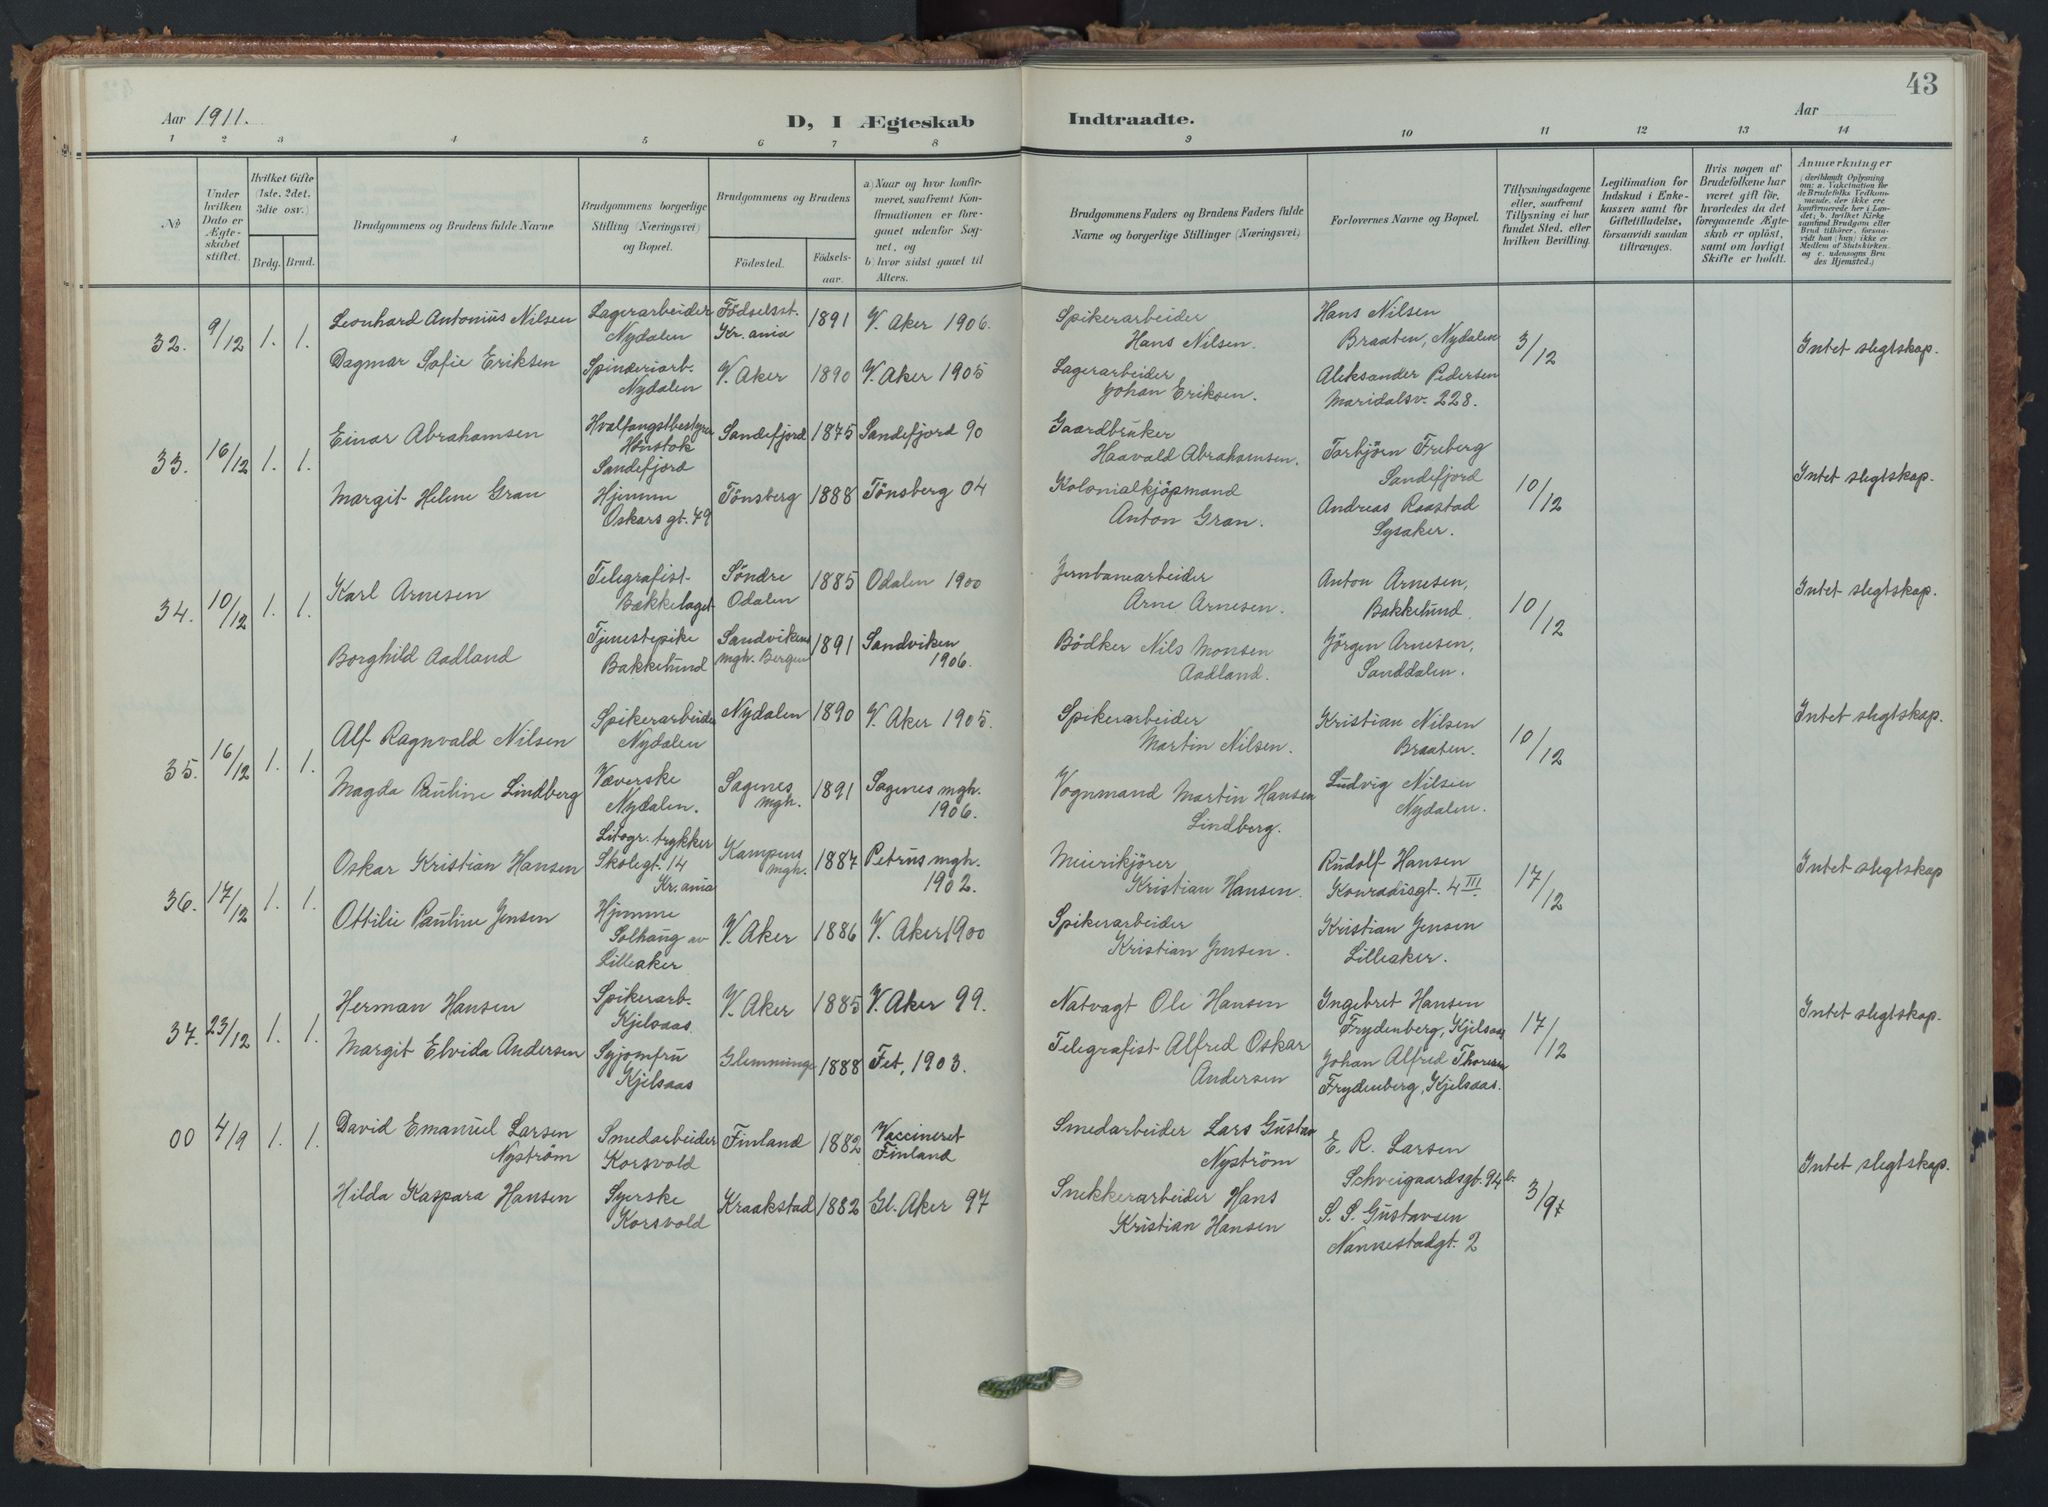 43
Aar 1911. D, I Ægteskab Indtraadte. Aar
1 2 3 4 5 6 7 8 9 10 11 12 13 14
No
Under hvilken Dato er Ægteskabet stiftet.
Hvilket Gifte (1ste, 2det, 3die osv.)
Brdg. Brud.
Brudgommens og Brudens fulde Navne
Brudgommens borgerlige Stilling (Næringsvei) og Bopæl.
Brudgommens og Brudens
Fødested. Fødselsaar.
a) Naar og hvor konfirmeret, saafremt Konfirmationen er foregaaet udenfor Sognet, og
b) hvor sidst gaaet til Alters.
Brudgommens Faders og Brudens Faders fulde Navne og borgerlige Stillinger (Næringsvei)
Forlovernes Navne og Bopæl.
Tillysningsdagene eller, saafremt Tillysning ei har fundet Sted, efter hvilken Bevilling.
Legitimation for Indskud i Enkekassen samt for Giftetilladelse, forsaavidt saadan tiltrænges.
Hvis nogen af Brudefolkene har været gift før, hvorledes da det foregaaende Ægteskab er opløst, samt om lovligt Skifte er holdt.
Anmærkninger
(deriblandt Oplysning om: a. Vaccination for de Brudefolks Vedkommende, der ikke ere konfirmerede her i Landet; b. hvilket Kirkesamfund Brudgom eller Brud tilhører, forsaavidt han (hun) ikke er Medlem af Statskirken og c. udensogns Brudes Hjemsted.)
32. 9/12 1. 1.
Leonhard Antonius Nilsen
Lagerarbeider
Nydalen
Födselsst.
Kr.ania
1891 V. Aker 1906.
Spikerarbeider
Hans Nilsen.
Hans Nilsen
Braaten, Nydalen
3/12
Intet slegtskap.
Dagmar Sofie Eriksen
Spinderiarb.
Nydalen
V. Aker 1890 V. Aker 1905
Lagerarbeider
Johan Eriksen.
Aleksander Pedersen
Maridalsv. 228.
33. 16/12 1. 1.
Einar Abrahamsen
Hvalfangstbestyrer
Sandefjord
Sandefjord 1875 Sandefjord 90
Gaardbruker
Haavald Abrahamsen.
Torbjörn Freberg
Sandefjord
10/12
Intet slegtskap.
Margit Helene Gran
Hjemme
Oskars gt. 49
Tönsberg 1888 Tönsberg 04
Kolonialkjöpmand
Anton Gran.
Andreas Raastad
Lysaker.
34. 10/12 1. 1.
Karl Arnesen
Telegrafist
Bækkelaget
Söndre
Odalen
1885 Odalen 1900
Jernbanearbeider
Arne Arnesen.
Anton Arnesen,
Bakkelund.
10/12
Intet slegtskap.
Borghild Aadland
Tjenestepike
Bakkelund
Sandvikens
mgh. Bergen
1891 Sandviken
1906.
Bödker Nils Monsen
Aadland.
Jörgen Arnesen,
Sanddalen.
35. 16/12 1. 1.
Alf Ragnvald Nilsen
Spikerarbeider
Nydalen
Nydalen 1890 V. Aker 1905.
Spikerarbeider
Martin Nilsen.
Kristian Nilsen
Braaten.
10/12
Intet slegtskap.
Magda Pauline Lindberg
Væverske
Nydalen.
Sagenes
mgh.
1891 Sagenes mgh.
1906.
Vognmand Martin Hansen
Lindberg.
Ludvig Nilsen
Nydalen.
36. 17/12 1. 1.
Oskar Kristian Hansen
Litogr. trykker
Skolegt. 14
Kr.ania
Kampens
mgh.
1887 Petrus mgh.
1902.
Meierikjörer
Kristian Hansen.
Rudolf Hansen
Konradisgt. 4 III.
17/12
Intet slegtskap
Ottilie Pauline Jensen
Hjemme
Solhaug av
Lilleaker
V. Aker 1886 V. Aker 1900
Spikerarbeider
Kristian Jensen.
Kristian Jensen
Lilleaker.
37. 23/12 1. 1.
Herman Hansen
Spikerarb.
Kjelsaas.
V. Aker 1885 V. Aker 99.
Natvagt Ole Hansen
Ingebret Hansen
Frydenberg, Kjelsaas
17/12
Intet slegtskap.
Margit Elvida Andersen
Syjomfru
Kjelsaas
Glemminge 1888 Fet, 1903.
Telegrafist Alfred Oskar
Andersen
Johan Alfred Thoresen
Frydenberg, Kjelsaas.
00 4/9 1. 1.
David Emanuel Larsen
Nyström
Smedarbeider
Korsvold
Finland 1882 Vaccineret
Finland
Smedarbeider Lars Gustav
Nyström
E. R. Larsen
Schveigaardsgt. 94 b.
3/9
Intet slegtskap.
Hilda Kaspara Hansen
Syerske
Korsvold
Kraakstad 1882 Gl. Aker 97
Snekkerarbeider Hans
Kristian Hansen
S. S. Gustavsen
Nannestadgt. 2